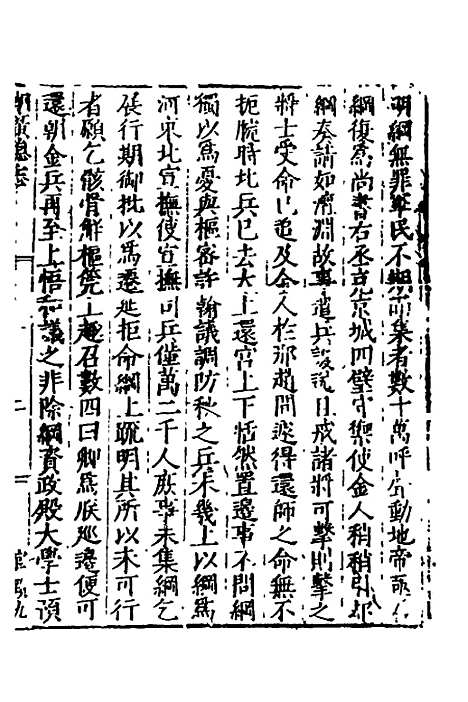 明綱無罪軍民不期而集者數十萬呼聲動地帝亟
綱復爲尚書右丞充京城四壁守禦使金人稍稍引却
綱奏請如澶淵故事遣兵護送且戒諸將可擊則擊之
將士受命已追及金人於邢趙間遽得還師之命無不
扼腕時北兵已去太上還宮上下恬然置邊事不問綱
獨以爲憂與樞密許翰議調防秋之兵未幾上以綱爲
河東北宣撫使宣撫司兵僅萬二千人庶事未集綱乞
展行期御批以爲遷延拒命綱上疏明其所以未可行
者願乞骸骨解樞筦上趣召數四曰卿爲朕廵邊便可
還朝金兵再至上悟和議之非除綱資政殿大學士領
湖廣總志